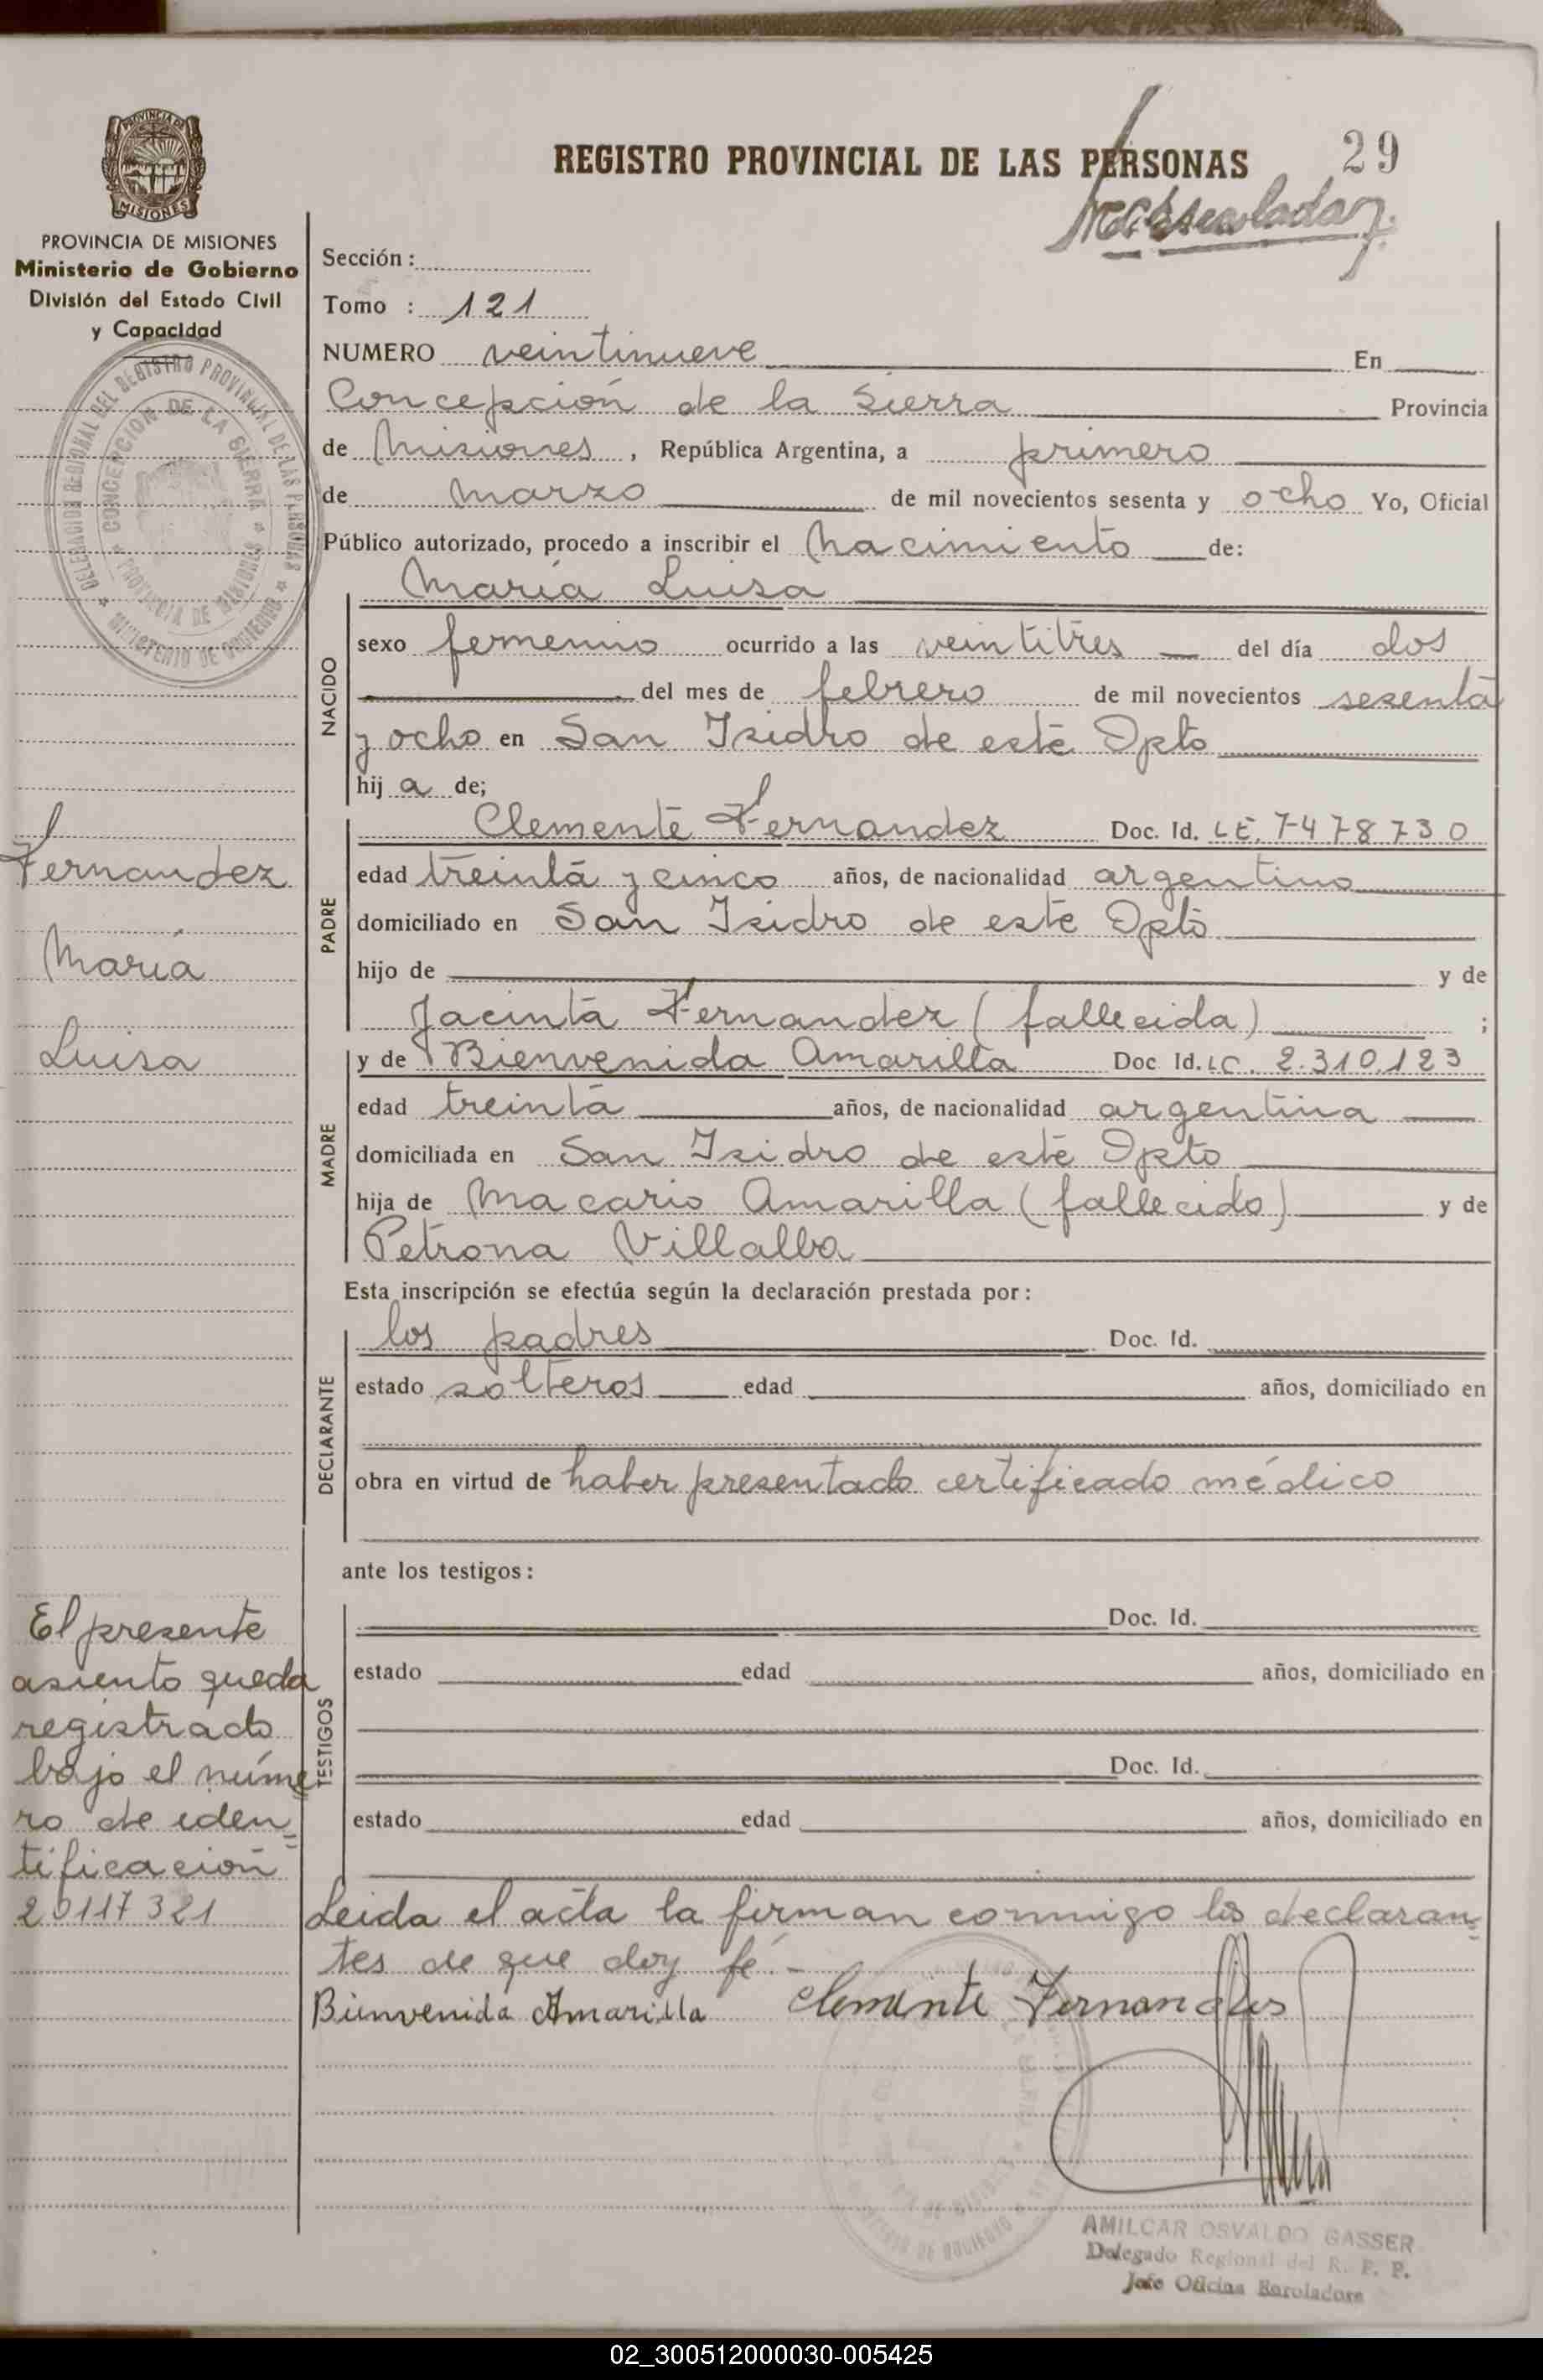 REGISTRO PROVINCIAL DE LAS PERSONAS
29
PROVINCIA DE
MISIONES
PROVINCIA DE MISIONES
Ministerio de Gobierno
División del Estado Civil
y Capacidad
DELEGACION REGIONAL DEL REGISTRO PROVINCIAL DE LAS PERSONAS
CONCEPCION DE LA SIERRA
PROVINCIA DE MISIONES
MINISTERIO DE GOBIERNO
Sección :
Tomo : 121
NUMERO veintinueve En
Concepción de la Sierra Provincia
de Misiones , República Argentina, a primero
de marzo de mil novecientos sesenta y ocho Yo, Oficial
Público autorizado, procedo a inscribir el nacimiento de:
NACIDO
María Luisa
sexo femenino ocurrido a las veintitres del día dos
del mes de febrero de mil novecientos sesenta
y ocho en San Isidro de este Dpto
hij a de;
PADRE
Clemente Fernandez Doc. Id. LE. 7478730
edad treinta y cinco años, de nacionalidad argentino
domiciliado en San Isidro de este Dpto
hijo de y de
Jacinta Fernandez (fallecida) ;
MADRE
y de Bienvenida Amarilla Doc Id. LC. 2.310.123
edad treinta años, de nacionalidad argentina
domiciliada en San Isidro de este Dpto
hija de Macario Amarilla (fallecido) y de
Petrona Villalba
Esta inscripción se efectúa según la declaración prestada por:
DECLARANTE
los padres Doc. Id.
estado solteros edad años, domiciliado en
obra en virtud de haber presentado certificado médico
ante los testigos:
TESTIGOS
Doc. Id.
estado edad años, domiciliado en
Doc. Id.
estado edad años, domiciliado en
Leida el acta la firman conmigo los declaran=
tes de que doy fé.-
Bienvenida Amarilla Clemente Fernandes
Fernandez
María
Luisa
El presente
asiento queda
registrado
bajo el núme
ro de iden=
tificación
20117321
AMILCAR OSVALDO GASSER
Delegado Regional del R. P. P.
Jefe Oficina Enroladora
02_300512000030-005425